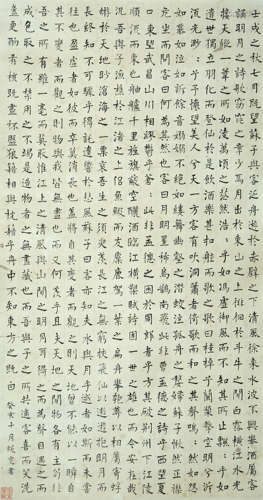 壬戌之秋七月既望蘇子與客泛舟遊於赤壁之下清風徐來水波不興舉酒屬客
誦明月之詩歌窈窕之章少焉月出於東山之上徘徊於斗牛之間白露橫江水光
接天縱一葦之所如凌萬頃之茫然浩浩乎如馮虛御風而不知其所止飄飄乎如
遺世獨立羽化而登仙於是飲酒樂甚扣舷而歌之歌曰桂棹兮蘭槳擊空明兮泝
流光渺渺兮予懷望美人兮天一方客有吹洞簫者倚歌而和之其聲嗚嗚然如怨
如慕如泣如訴餘音嫋嫋不絕如縷舞幽壑之潛蛟泣孤舟之嫠婦蘇子愀然正襟
危坐而問客曰何為其然也客曰月明星稀烏鵲南飛此非曹孟德之詩乎西望夏
口東望武昌山川相繆鬱乎蒼蒼此非孟德之困於周郎者乎方其破荊州下江陵
順流而東也舳艫千里旌旗蔽空釃酒臨江橫槊賦詩固一世之雄也而今安在哉
況吾與子漁樵於江渚之上侶魚蝦而友麋鹿駕一葉之扁舟舉匏樽以相屬寄蜉
蝣於天地渺滄海之一粟哀吾生之須臾羨長江之無窮挾飛仙以遨遊抱明月而
長終知不可乎驟得託遺響於悲風蘇子曰客亦知夫水與月乎逝者如斯而未嘗
往也盈虛者如彼而卒莫消長也蓋將自其變者而觀之則天地曾不能以一瞬自
其不變者而觀之則物與我皆無盡也而又何羨乎且夫天地之間物各有主苟非
吾之所有雖一毫而莫取惟江上之清風與山間之明月耳得之而為聲目遇之而
成色取之無禁用之不竭是造物者之無盡藏也而吾與子之所共適客喜而笑洗
盞更酌肴核既盡杯盤狼籍相與枕藉乎舟中不知東方之既白 癸亥十月 書